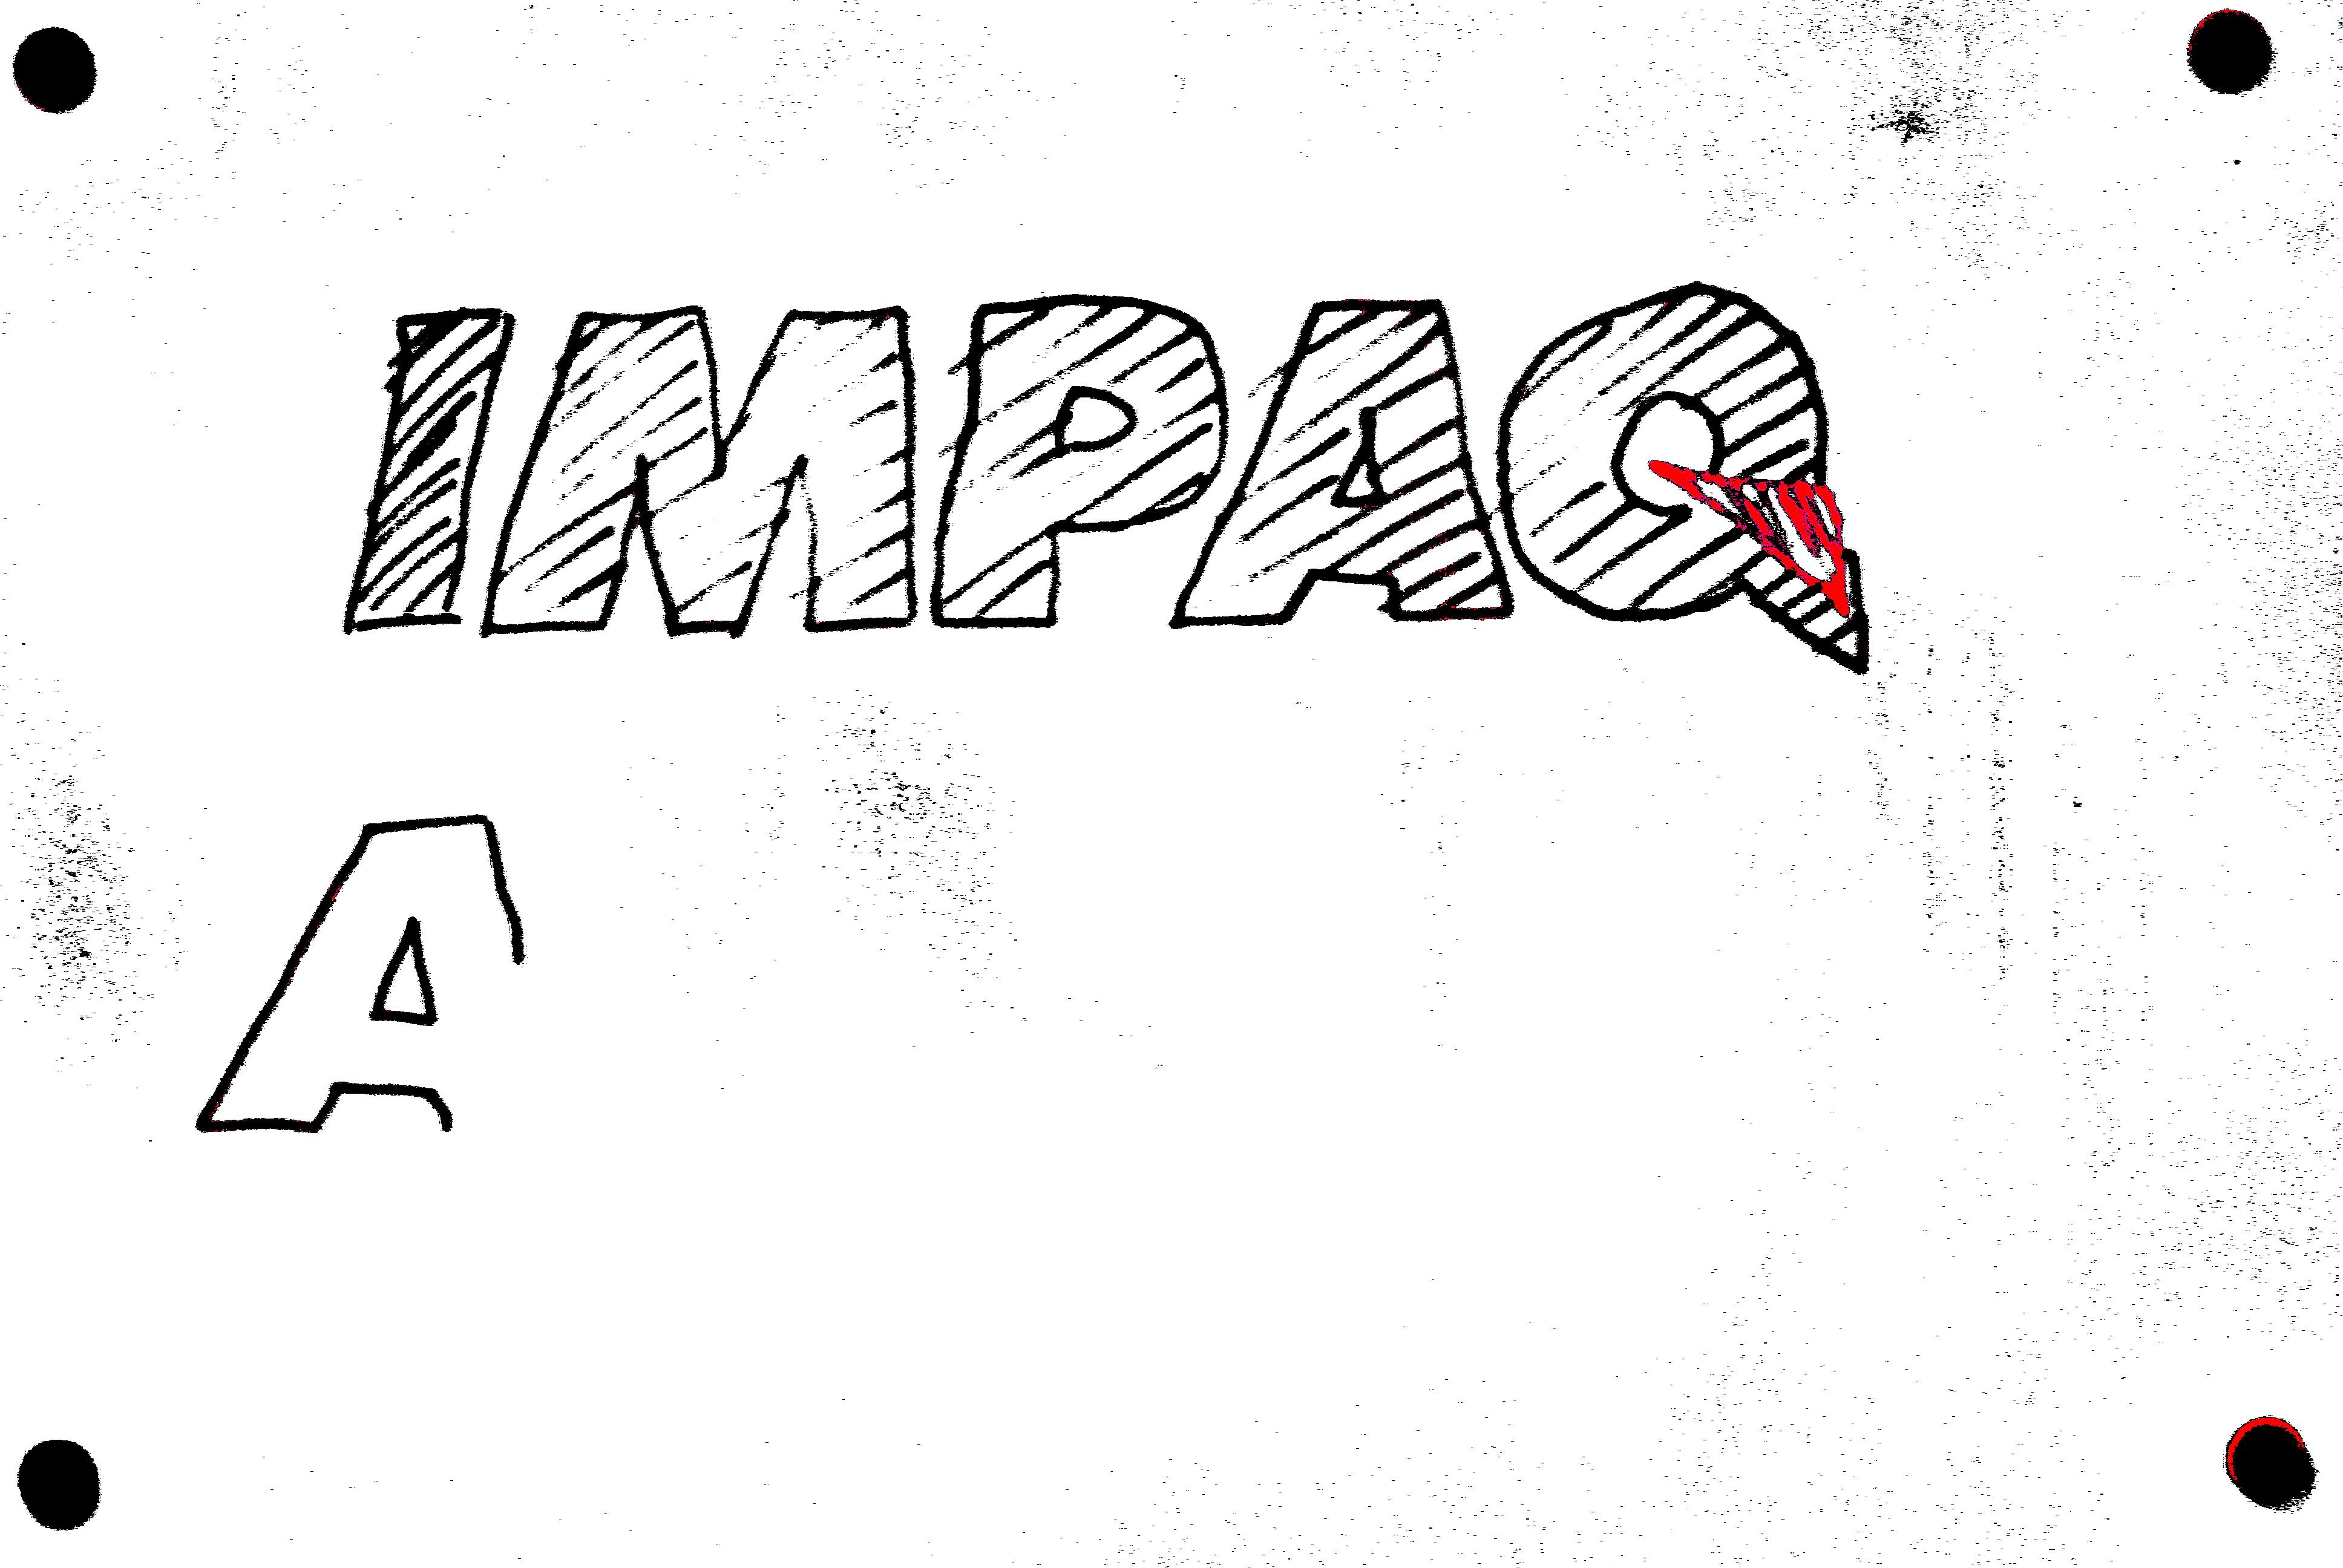 IMPAQ
A